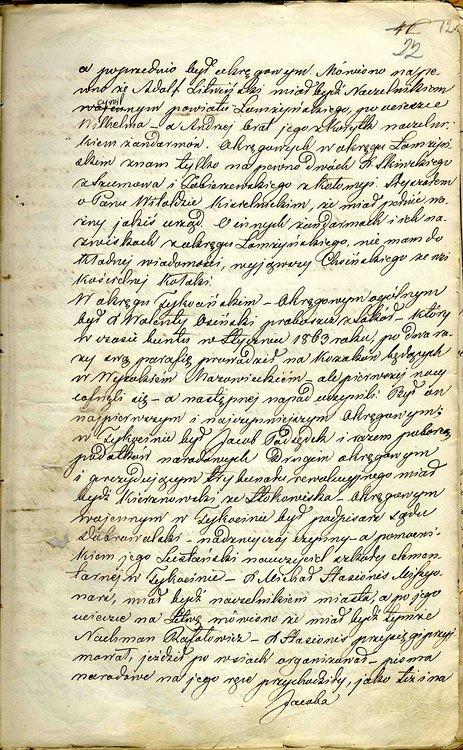 12
22
a poprzednio był okręgowym. Mówiono na pe-
wno że Adolf Litwiński miał bydź Naczelnikiem
cywil
wojennym powiatu Łomżyńskiego, po ucieczce
Wilhelma - a Andrzej brat jego z Korytk naczelni-
kiem żandarmów. Okręgowych w okręgu Łomżyń-
skim znam tylko na pewno dwóch X. Skiwskiego
z Szumowa i Łabiszewskiego z Kołomyj. Słyszałem
o Panu Witoldzie Kisielnickim, że miał pełnić wa-
żny jakiś urząd. O innych żandarmach i ich na-
zwiskach z okręgu Łomżyńskiego, nie mam do
kładnej wiadomości, wyjąwszy Chrósińskiego ze wsi
Kościelnej Kołaki.
W okręgu tykocińskim - Okręgowym ogólnym
był X Walenty Osiński proboszcz z Sokół - który
w czasie buntu w Styczniu 1863 roku, po dwa ra-
zy swą parafię prowadził na Kozaków będących
w Wysokiem Mazowieckiém - ale pierwszej nocy
cofnęli się - a następnej napad uczynili. Był on
najpierwszym i najczynniejszym Okręgowym;
w Tykocinie był Jacob i razem poborcą
podatków narodowych Drugim okręgowym
i prezydującym trybunału rewolucyjnego miał
bydź Kierznowski ze Stokowiska - Okręgowym
wojennym w Tykocinie był podpisarz sądu
Dąbrowolski - nadzwyczaj czynny - a pomocni-
kiem jego Lustański nauczyciel szkoły elemen-
tarnej w Tykocinie - X Michał Stasionis Missyo-
narz, miał bydź naczelnikiem miasta, a po jego
ucieczce na Litwę mówiono że miał bydź tymże
Nachman Rafałowicz - X Stasionis przysięgi przyj-
mował, jeździł po wsiach organizował - pisma
narodowe na jego ręce przychodziły, jako też i na
Jacoba